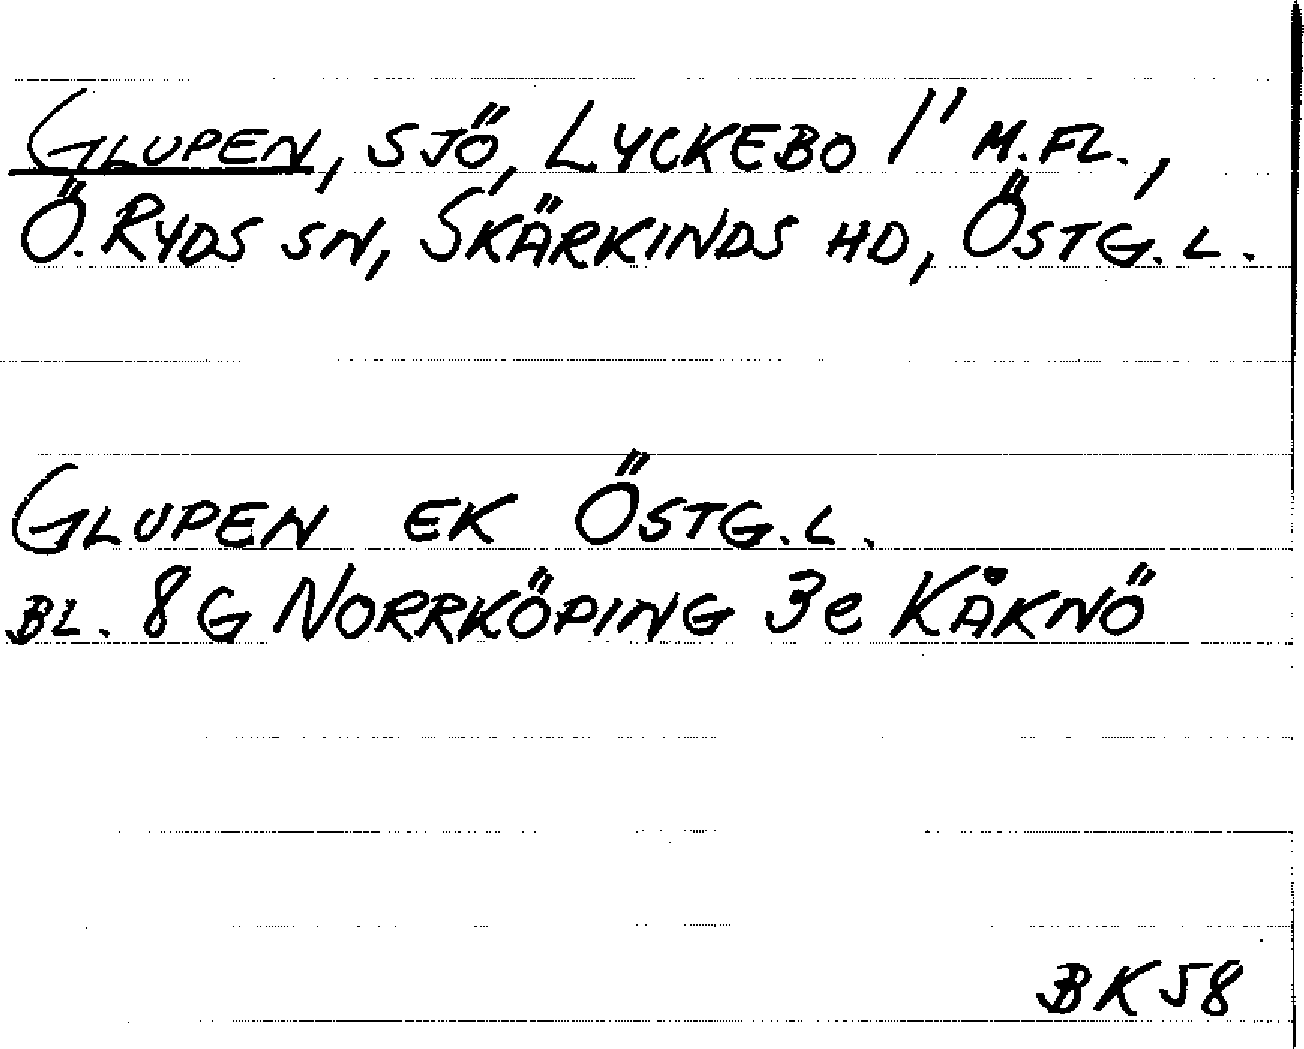 GLUPEN, SJÖ, LYCKEBO 1' M.FL.,
Ö. RYDS SN, SKÄRKINDS HD, ÖSTG. L.
GLUPEN EK ÖSTG. L.
BL. 8 G NORRKÖPING 3e KÅKNÖ
BK 58